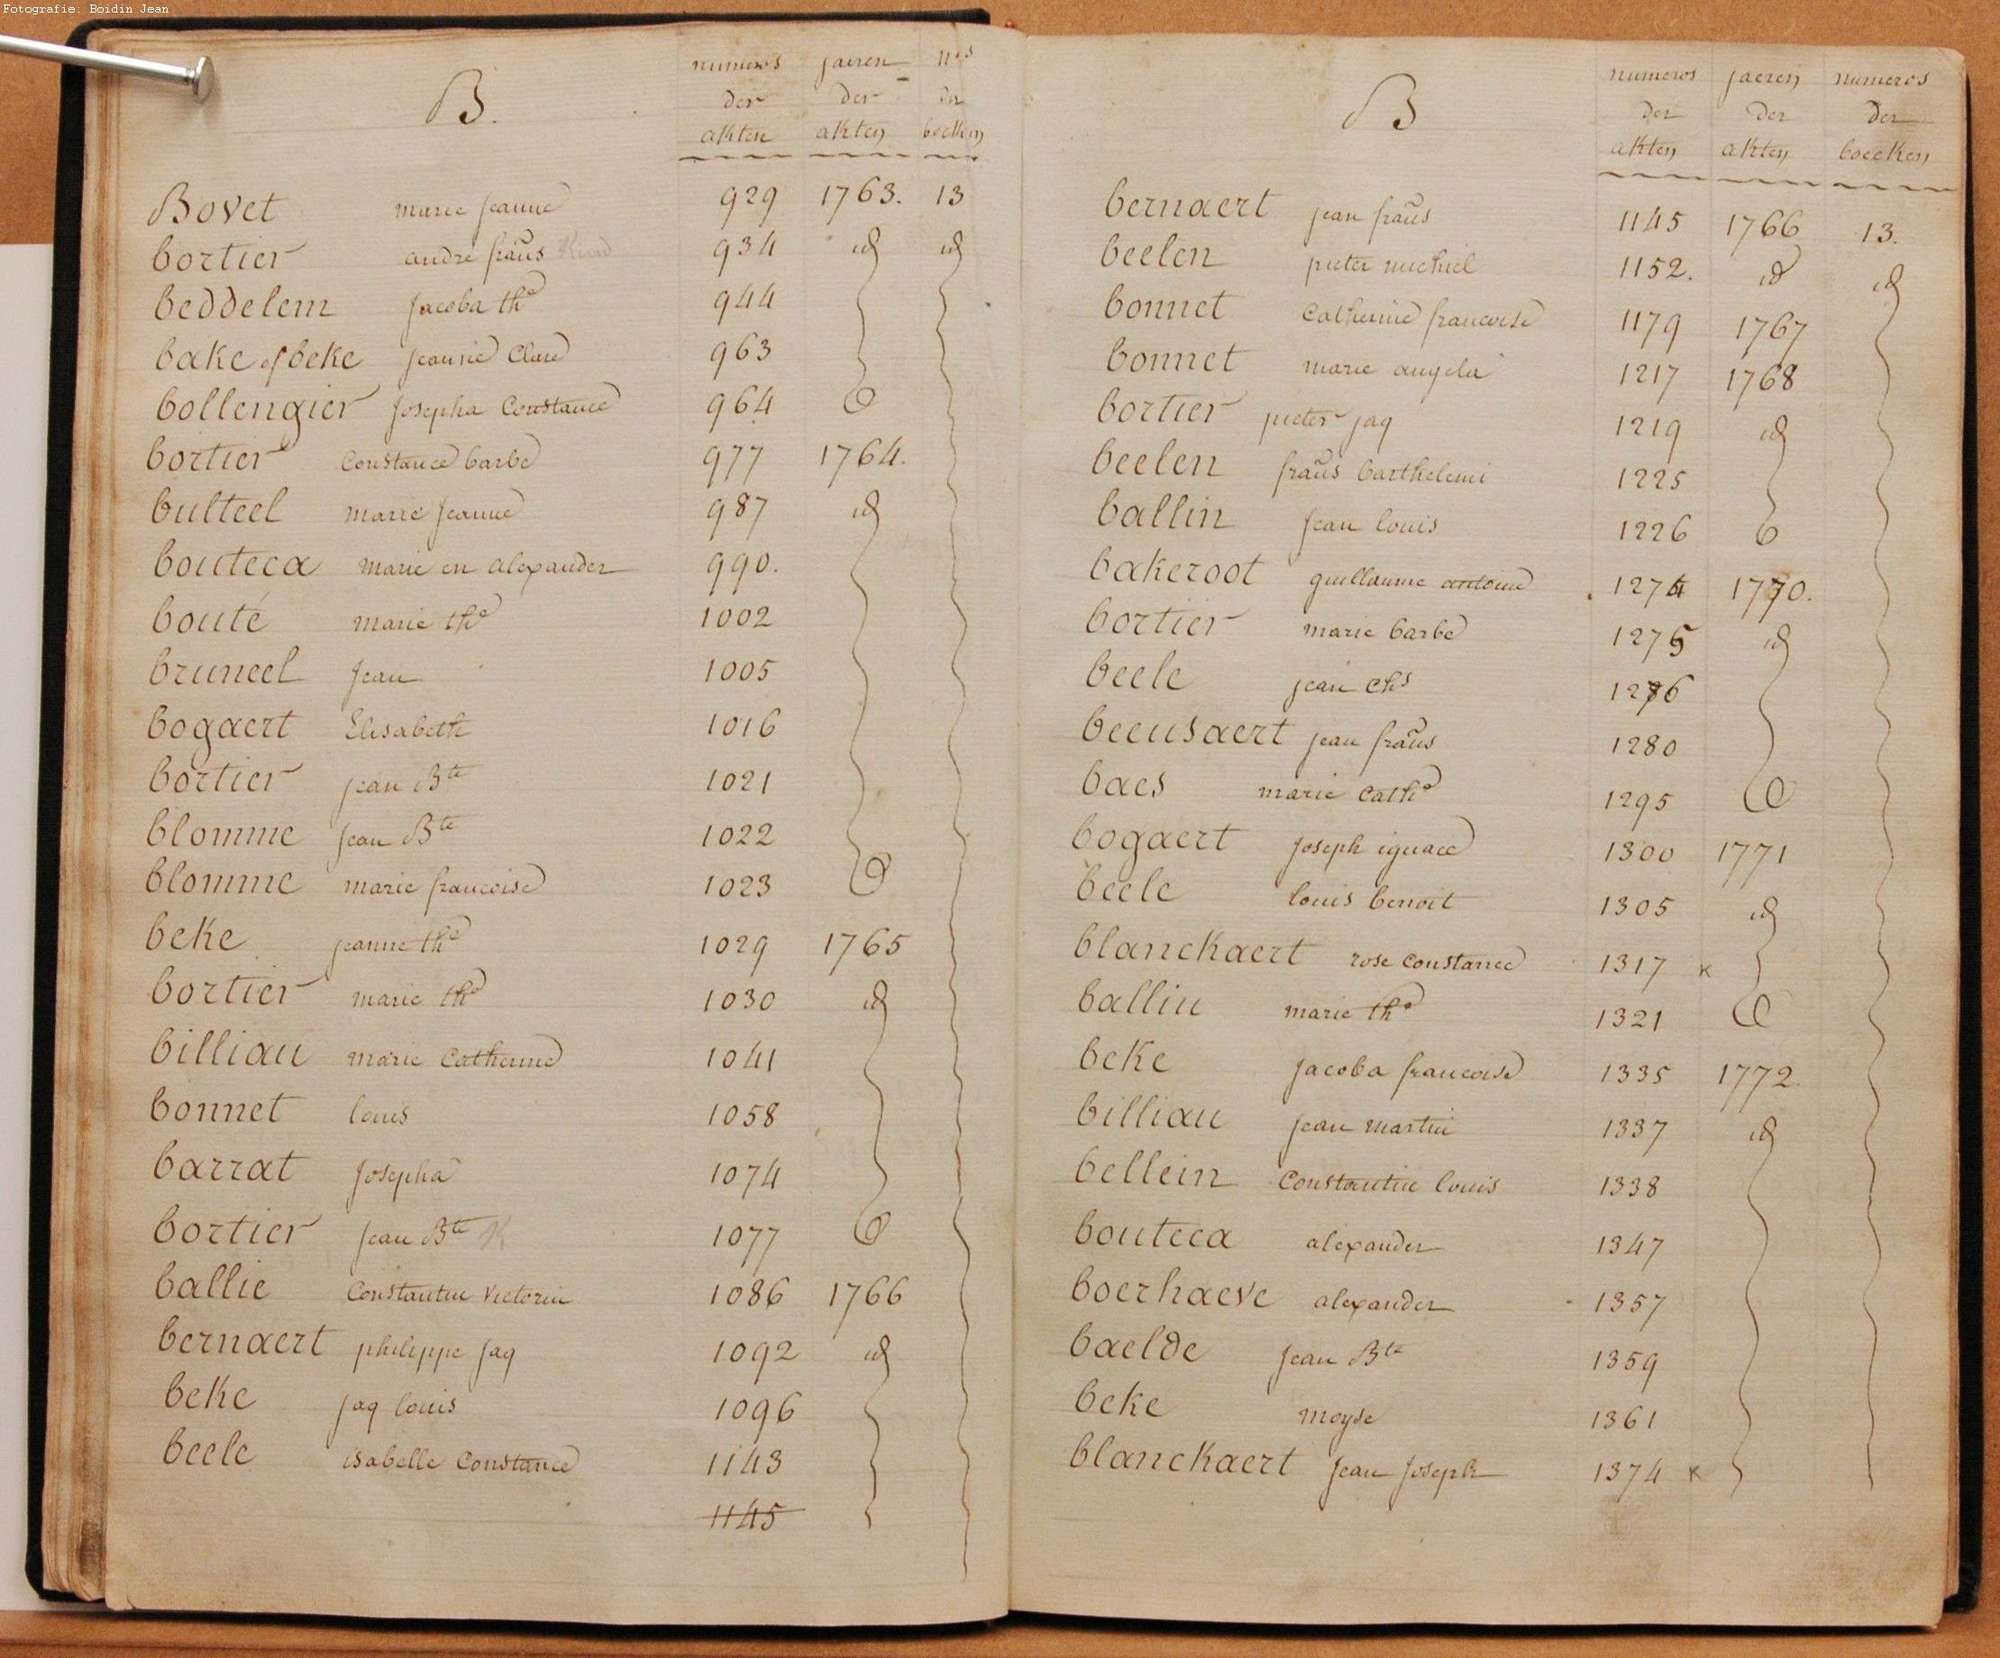 Fotografie: Boidin Jean
B. numeros jaeren nos
der der der
akten akten boeken
Bovet marie jeanne 929 1763. 13
bortier andre fra͠us 934 id id
beddelem jacoba the 944
bake of beke jeanne Clare 963
bollengier josepha Constance 964
bortier Constance barbe 977 1764.
bulteel marie jeanne 987 id
bouteca marie en alexander 990.
bouté marie the 1002
bruneel jean 1005
bogaert Elisabeth 1016
bortier jean Bte 1021
blomme jean Bte 1022
blomme marie francoise 1023
beke jeanne the 1029 1765
bortier marie the 1030 id
billiau marie Catherine 1041
bonnet louis 1058
barrat josepha 1074
bortier jean Bte K 1077
ballie Constantin Victorin 1086 1766
bernaert philippe jaq 1092 id
beke jaq louis 1096
beele isabelle Constance 1143
1145
B numeros jaeren numeros
der der der
akten akten boecken
bernaert jean fra͠us 1145 1766 13.
beelen pieter michiel 1152. id id
bonnet Catherine francoise 1179 1767
bonnet marie angela 1217 1768
bortier pieter jaq 1219 id
beelen fra͠us barthelemi 1225
ballin jean louis 1226
bakeroot guillaume antoine 1274 1770.
bortier marie barbe 1275 id
beele jean chs 1276
beeusaert jean fra͠us 1280
baes marie cathe 1295
bogaert joseph ignace 1300 1771
beele louis benoit 1305 id
blanckaert rose constance 1317 x
balliu marie the 1321
beke jacoba francoise 1335 1772.
billiau jean martin 1337 id
bellein Constantin louis 1338
bouteca alexander 1347
boerhaeve alexander 1357
baelde jean Bte 1359
beke moyse 1361
blanckaert jean joseph 1374 x